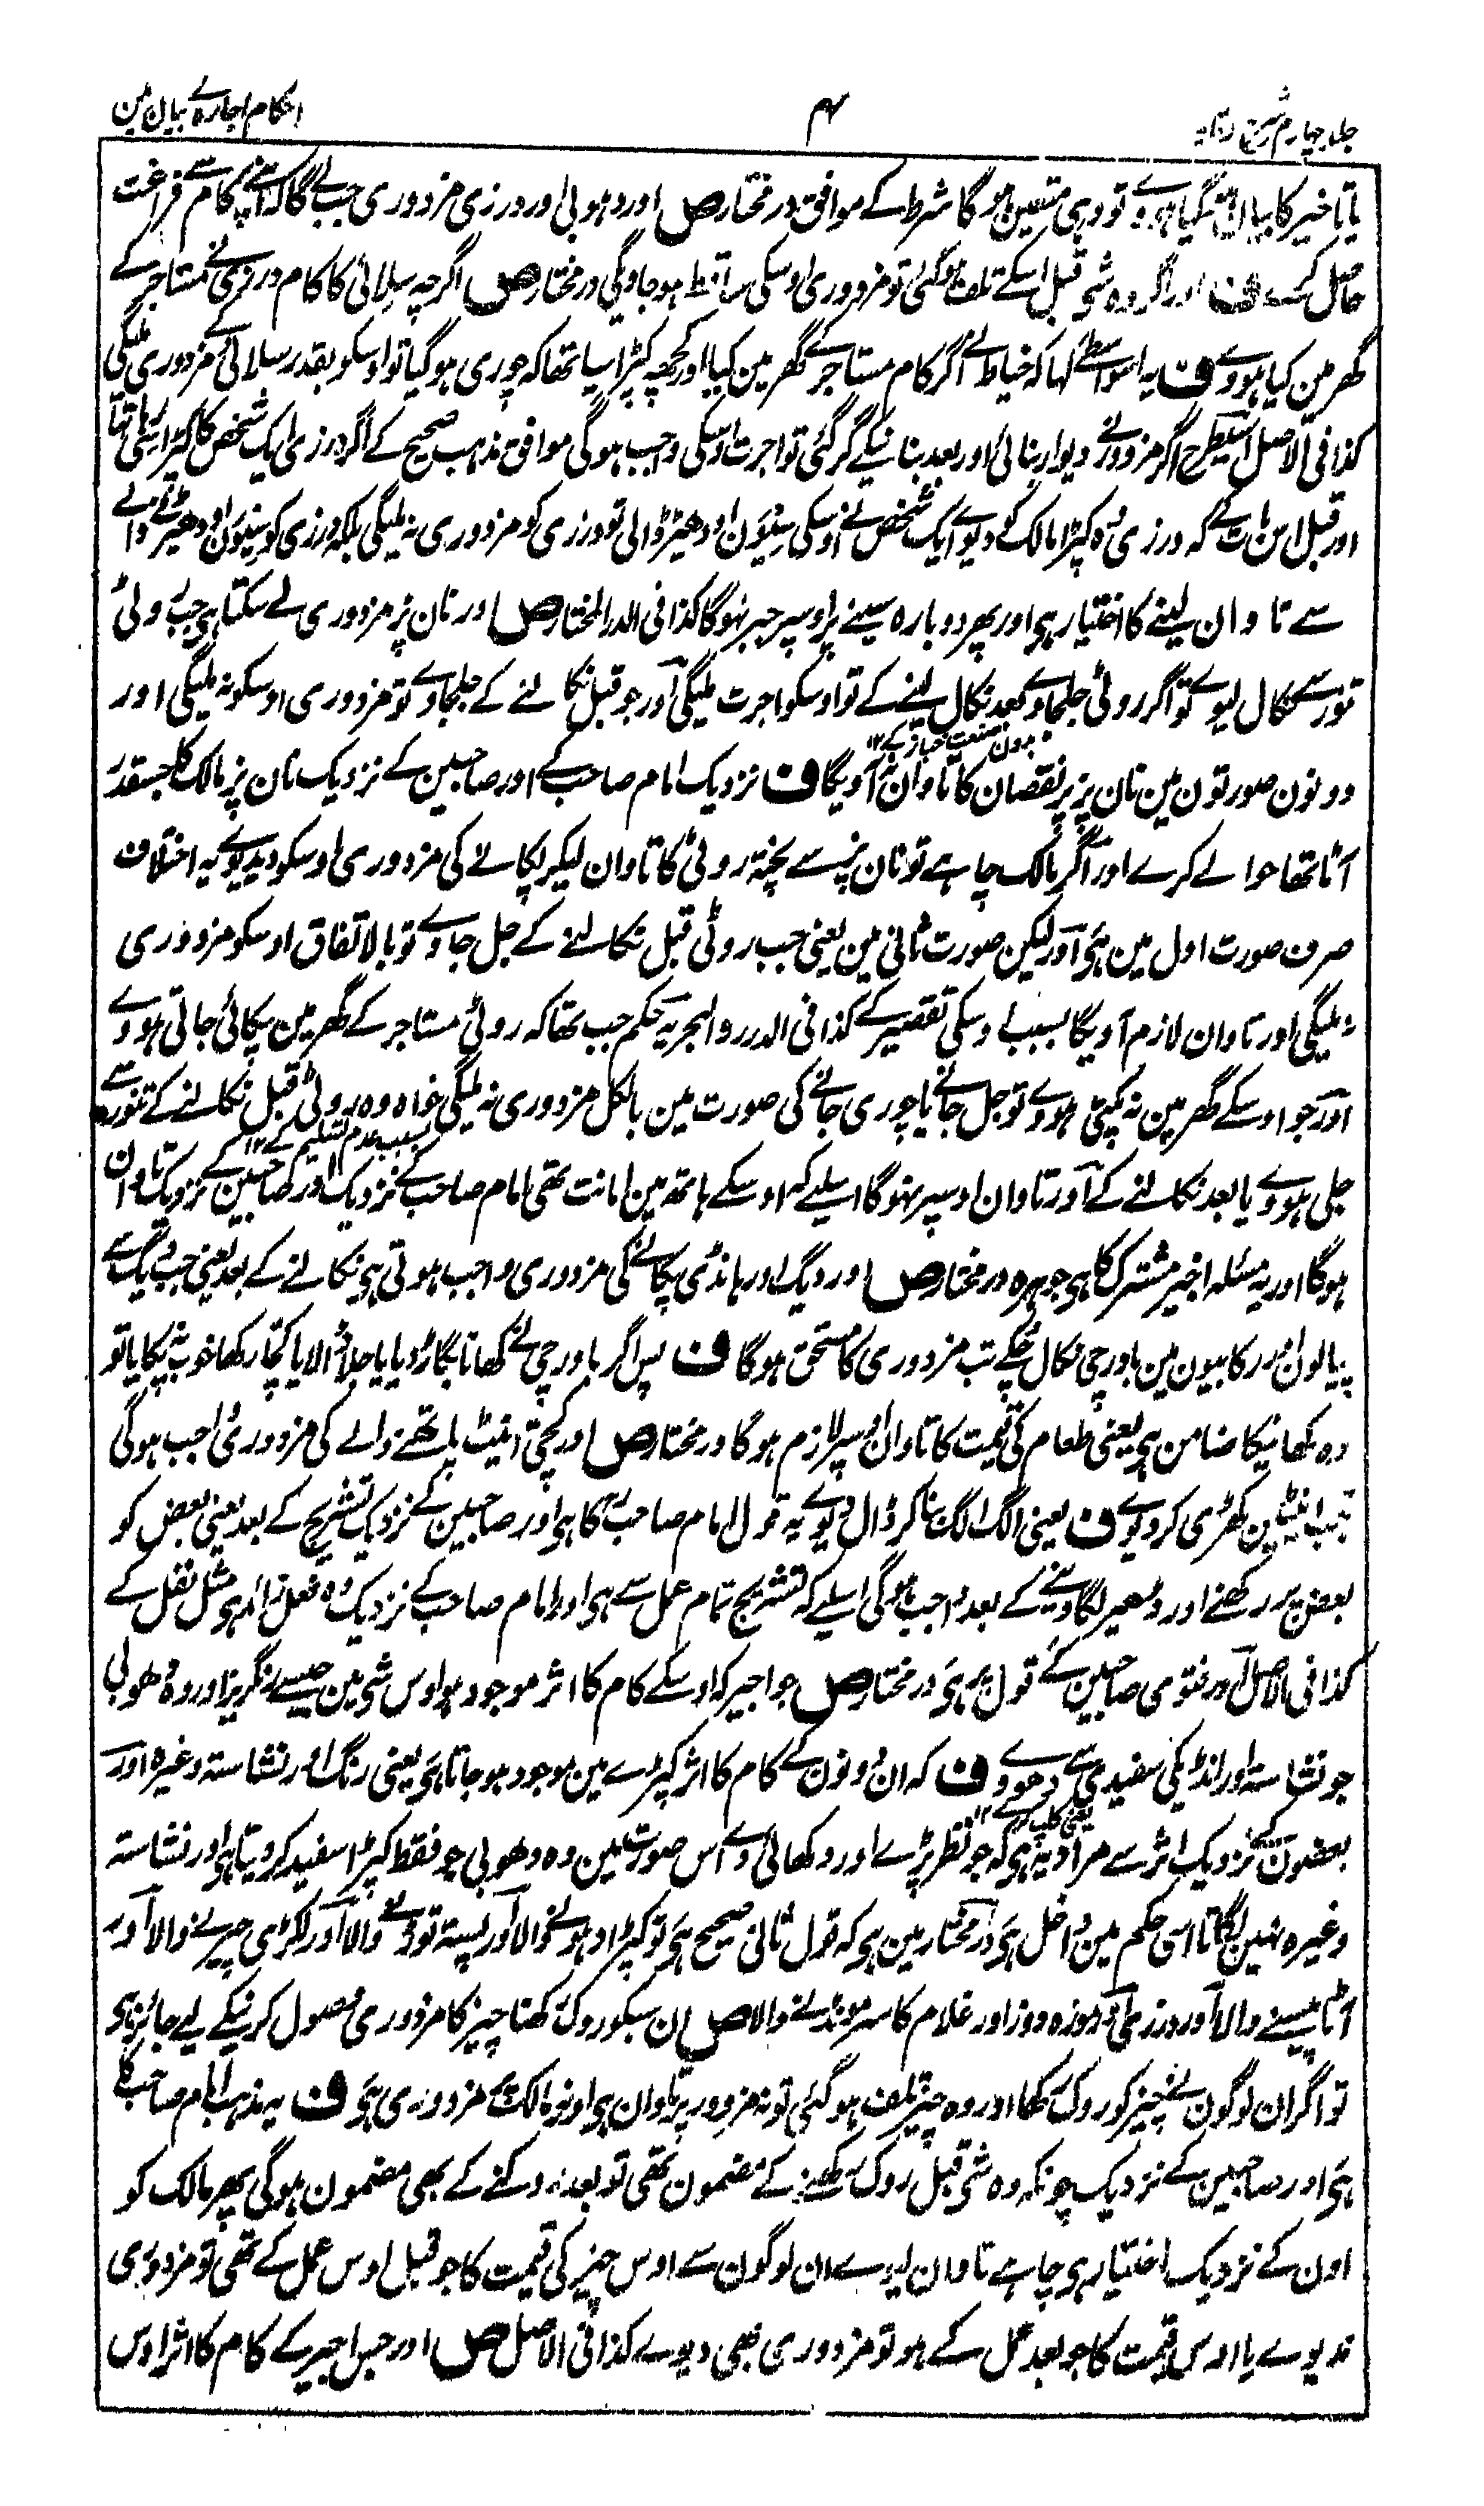 جلد چہارم شرح وقایہ
۴
احکام اجارہ کے بیان مین
یا تاخیر کا بیان کیا گیا ہووے تو وہی متعین ہوگا شرط کے موافق در مختار ص اور دھوبی اور درزی مزدوری جب لے گا کہ اپنے کام سے فراغت
حاصل کرے ف اور اگر وہ شی قبل اسکے تلف ہوگئی تو مزدوری اوسکی ساقط ہو جاویگی در مختار ص اگرچہ سلائی کا کام درزی نے مستاجر کے
گھر مین کیا ہووے ف یہ اسواسطے کہا کہ خیاط نے اگر کام مستاجر کے گھر مین کیا اور کچھ کپڑا سیا تھا کہ چوری ہوگیا تو اوسکو بقدر سلائی کے مزدوری ملیگی
کذا فی الاصل اسیطرح اگر مزدور نے دیوار بنائی اور بعد بنانیکے گر گئی تو اجرت اوسکی واجب ہوگی موافق مذہب صحیح کے اگر درزی ایک شخص کا کپڑا سی رہا تھا
اور قبل اس بات کے کہ درزی وہ کپڑا مالک کو دیوے ایک شخص نے اوسکی سیون اودھیڑ ڈالی تو درزی کو مزدوری نہ ملیگی بلکہ درزی کو سیون اودھیڑنے والے
سے تاوان لینے کا اختیار ہی اور پھر دوبارہ سینے پر اوسپر جبر نہوگا کذا فی الدر المختار ص اور نان پز مزدوری لے سکتا ہی جب روٹی
تنور سے نکال لیوے تو اگر روٹی جلجاوے بعد نکال لینے کے تو اوسکو اجرت ملیگی اور جو قبل نکالنے کے جلجاوے تو مزدوری اوسکو نہ ملیگی اور
بدون صنعت خباز کے ۱۲
دونون صورتون مین نان پز پر نقصان کا تاوان نہ آویگا ف نزدیک امام صاحب کے اور صاحبین کے نزدیک نان پز مالک کا جسقدر
آٹا تھا حوالے کرے اور اگر مالک چاہے تو نان پز سے پختہ روٹی کا تاوان لیکر پکانے کی مزدوری اوسکو دیدیوے یہ اختلاف
صرف صورت اول مین ہی اور لیکن صورت ثانی مین یعنی جب روٹی قبل نکالنے کے جل جاوے تو بالاتفاق اوسکو مزدوری
نہ ملیگی اور تاوان لازم آویگا بسبب اوسکی تقصیر کے کذا فی الدرر والبحر یہ حکم جب تھا کہ روٹی مستاجر کے گھر مین پکائی جاتی ہووے
اور جو اوسکے گھر مین نہ پکتی ہووے تو جل جانے یا چوری جانے کی صورت مین بالکل مزدوری نہ ملیگی خواہ وہ روٹی قبل نکالنے کے تنور سے
بسبب عدم تسلیم کے ۱۲
جلی ہووے یا بعد نکالنے کے اور تاوان اوسپر نہوگا اسلیے کہ اوسکے ہاتھ مین امانت تھی امام صاحب کے نزدیک اور صاحبین کے نزدیک تاوان
ہوگا اور یہ مسئلہ اجیر مشترک کا ہی جوہرہ در مختار ص اور دیگ اور ہانڈی پکانے کی مزدوری واجب ہوتی ہی نکالنے کے بعد یعنی جب دیگ سے
پیالون اور رکابیون مین باورچی نکال چکے تب مزدوری کا مستحق ہوگا ف پس اگر باورچی نے کھانا بگاڑ دیا یا جلا ڈالا یا کچا رکھا خوب نہ پکایا تو
وہ کھانیکا ضامن ہی یعنی طعام کی قیمت کا تاوان اوسپر لازم ہوگا در مختار ص اور کچی اینٹ پاتھنے والے کی مزدوری واجب ہوگی
جب اینٹین کھڑی کر دیوے ف یعنی الگ الگ بنا کر ڈال دیوے یہ قول امام صاحب کا ہی اور صاحبین کے نزدیک تشریج کے بعد یعنی بعض کو
بعض پر رکھنے اور ڈھیر لگا دینے کے بعد واجب ہوگی اسلیے کہ تشریج تمام عمل سے ہی اور امام صاحب کے نزدیک وہ فعل زائد ہی مثل نقل کے
کذا فی الاصل اور فتوی صاحبین کے قول پر ہی در مختار ص جو اجیر کہ اوسکے کام کا اثر موجود ہو اوس شی مین جیسے رنگریز اور وہ دھوبی
جو نشاستہ اور انڈیکی سفیدی سے دھووے ف کہ ان دونون کے کام کا اثر کپڑے مین موجود ہو جاتا ہی یعنی رنگ اور نشاستہ وغیرہ اور
یعنی کلپ کرے ۱۲
بعضون کے نزدیک اثر سے مراد یہ ہی کہ جو نظر پڑے اور دکھائی دے اس صورت مین وہ دھوبی جو فقط کپڑا سفید کر دیتا ہی اور نشاستہ
وغیرہ نہین لگاتا اسی حکم مین داخل ہی در مختار مین ہی کہ قول ثانی صحیح ہی تو کپڑا دھونے والا اور پستہ توڑنے والا اور لکڑی چیرنے والا اور
آٹا پیسنے والا اور درزی اور موزہ دوز اور غلام کا سر مونڈنے والا ص ان سبکو روک رکھنا چیز کا مزدوری وصول کرنیکے لیے جائز ہی
تو اگر ان لوگون نے چیز کو روک رکھا اور وہ چیز تلف ہوگئی تو نہ مزدور پر تاوان ہی اور نہ مالک پر مزدوری ہی ف یہ مذہب امام صاحب کا
ہی اور صاحبین کے نزدیک چونکہ وہ شی قبل روک رکھنے کے مضمون تھی تو بعد روکنے کے بھی مضمون ہوگی پھر مالک کو
اون کے نزدیک اختیار ہی چاہے تاوان لیوے ان لوگون سے اوس چیز کی قیمت کا جو قبل اوس عمل کے تھی تو مزدوری
ندیوے یا اوس قیمت کا جو بعد عمل کے ہو تو مزدوری بھی دیوے کذا فی الاصل ص اور جس اجیر کے کام کا اثر اوس